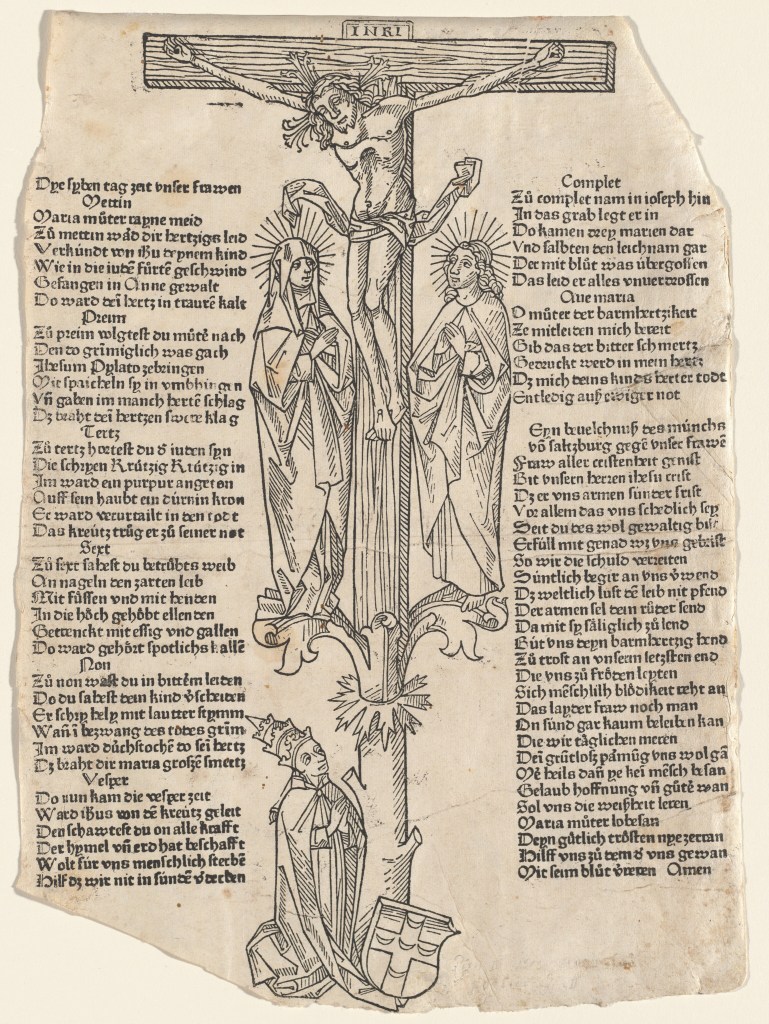 INRI
Dye syben tag zeit vnser frawen
Mettin
Maria můter rayne meid
Zů mettin wa͛d dir hertzigs leid
Verkúndt von ihu deynem kind
Wie in die iudē fürtē geschwind
Gefangen in Anne gewalt
Do ward deī hertz in traurē kalt
Preim
Zů preim volgtest du můtē nach
Den do grimiglich was gach
Jhesum Pylato zebringen
Mit spaicheln sy in vmbhingen
Vn̄ gaben im manch hertē schlag
Dz braht deī hertzen swere klag
Tertz
Zů tertz hortest du d iuden syn
Die schryen Krützig Krützig in
Im ward ein purpur angeton
Auff sein haubt ein dürnin kron
Er ward verurtailt in den todt
Das kreütz trůg er zů seiner not
Sext
Zů sext sahest du betrübtes weib
An nageln den zarten leib
Mit füssen vnd mit henden
In die höch gehöbt ellenden
Getrenckt mit essig vnd gallen
Do ward gehört spotlichs kallē
Non
Zů non wast du in bitterm leiden
Do du sahest dein kind v̄scheiden
Er schry hely mit lautter stymm
Wan̄ i bezwang des todes grim̄
Im ward durchstochē do sei hertz
Dz braht dir maria grossē smertz
Vesper
Do nun kam die vesper zeit
Ward ihus von dē kreütz geleit
Den schawtest du on alle krafft
Der hymel vn̄ erd hat beschafft
Wolt für vns menschlich sterbē
Hilf dz wir nit in sündē v̄derben
Complet
Zů complet nam in ioseph hin
In das grab legt er in
Do kamen drey marien dar
Vnd salbten den leichnam gar
Der mit blůt was übergossen
Das leid er alles vnuerdrossen
Aue maria
O můter der barmhertzikeit
Ze mitleiden mich bereit
Gib das der bitter schmertz
Gedruckt werd in mein hertz
Dz mich deins kinds herter todt
Entledig auß ewiger not
Eyn beuelchnuß des münchs
vō saltzburg gegē vnser frawē
Fraw aller cristenheit genist
Bit vnsern herren ihesu crist
Dz er vns armen sünder frist
Vor allem das vns schedlich sey
Seit du des wol gewaltig bist
Erfüll mit genad wz vns gebrist
So wir die schuld verreiten
Süntlich begir an vns v̄wend
Dz weltlich lust dē leib nit pfend
Der armen sel dein růder send
Da mit sy säliglich zů lend
Büt vns deyn barmhertzig hend
Zů trost an vnserm letzsten end
Die vns zů fröden leyten
Sich mēschlih blödikeit teht an
Das layder fraw noch man
On sünd gar kaum beleiben kan
Die wir täglichen meren
Dei grūtloß pārmūg vns wol gā
Mē heils dan̄ ye kei mēsch besan
Gelaub hoffnung vn̄ gūtē wan
Sol vns die weißheit leren
Maria můter lobesan
Deyn gůtlich trösten nye zerran
Hilff vns zů dem d vns gewan
Mit seim blůt v̄reren Amen